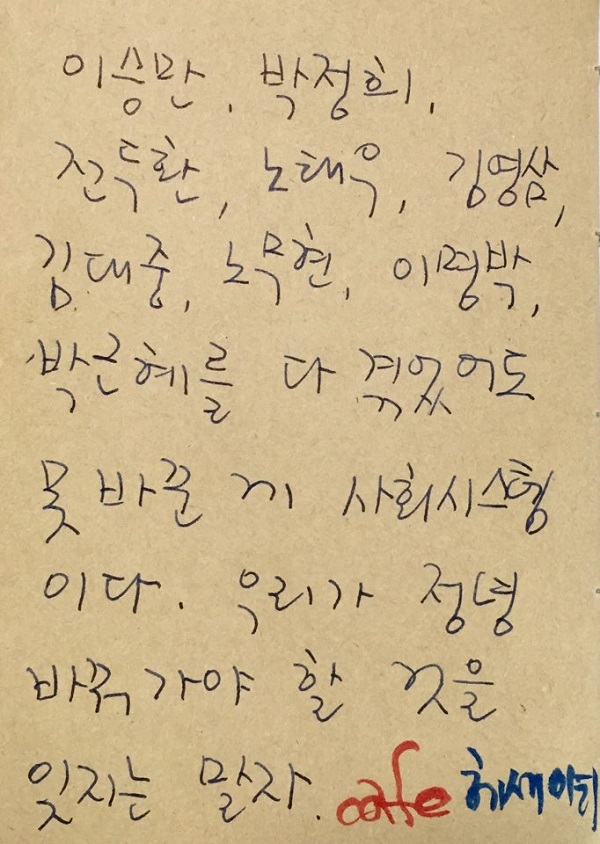 이승만, 박정희,
전두환, 노태우, 김영삼,
김대중, 노무현, 이명박,
박근혜를 다 겪었어도
못 바꾼 게 사회시스템
이다. 우리가 정녕
바꿔가야 할 것을
잊지는 말자. caffe